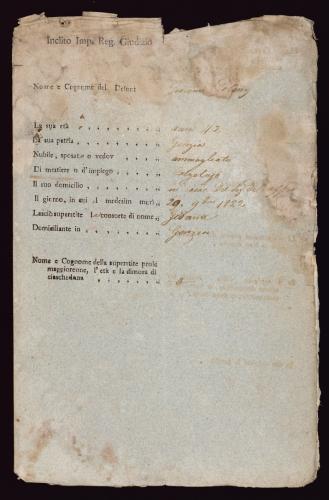 Inclito Imp. Reg. Giudizio
Nome e Cognome del Defont
La sua età , , , , , , , anni 42
La sua patria , , , , , , Gorizia
Nubile, sposato o vedov , , , ammogliato
Di mestiere o d'impiego , , ,
Il suo domicilio , , , , , in
Il giorno, in cui il medesim morì , 20. 9bre 1822.
Lasciò superstite la consorte di nome ,
Domiciliante in , , , , , Gorizia
Nome e Cognome della superstite prole
maggiorenne, l'età e la dimora di
ciascheduna , , , , , ,